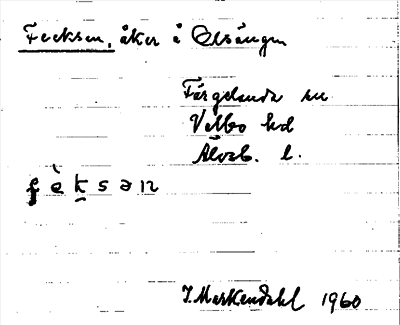 Fecksen, åker å Elsängen
Färgelanda sn
Valbo hd
Älvsb. l.
f è k s ə n
I. Markendahl 1960